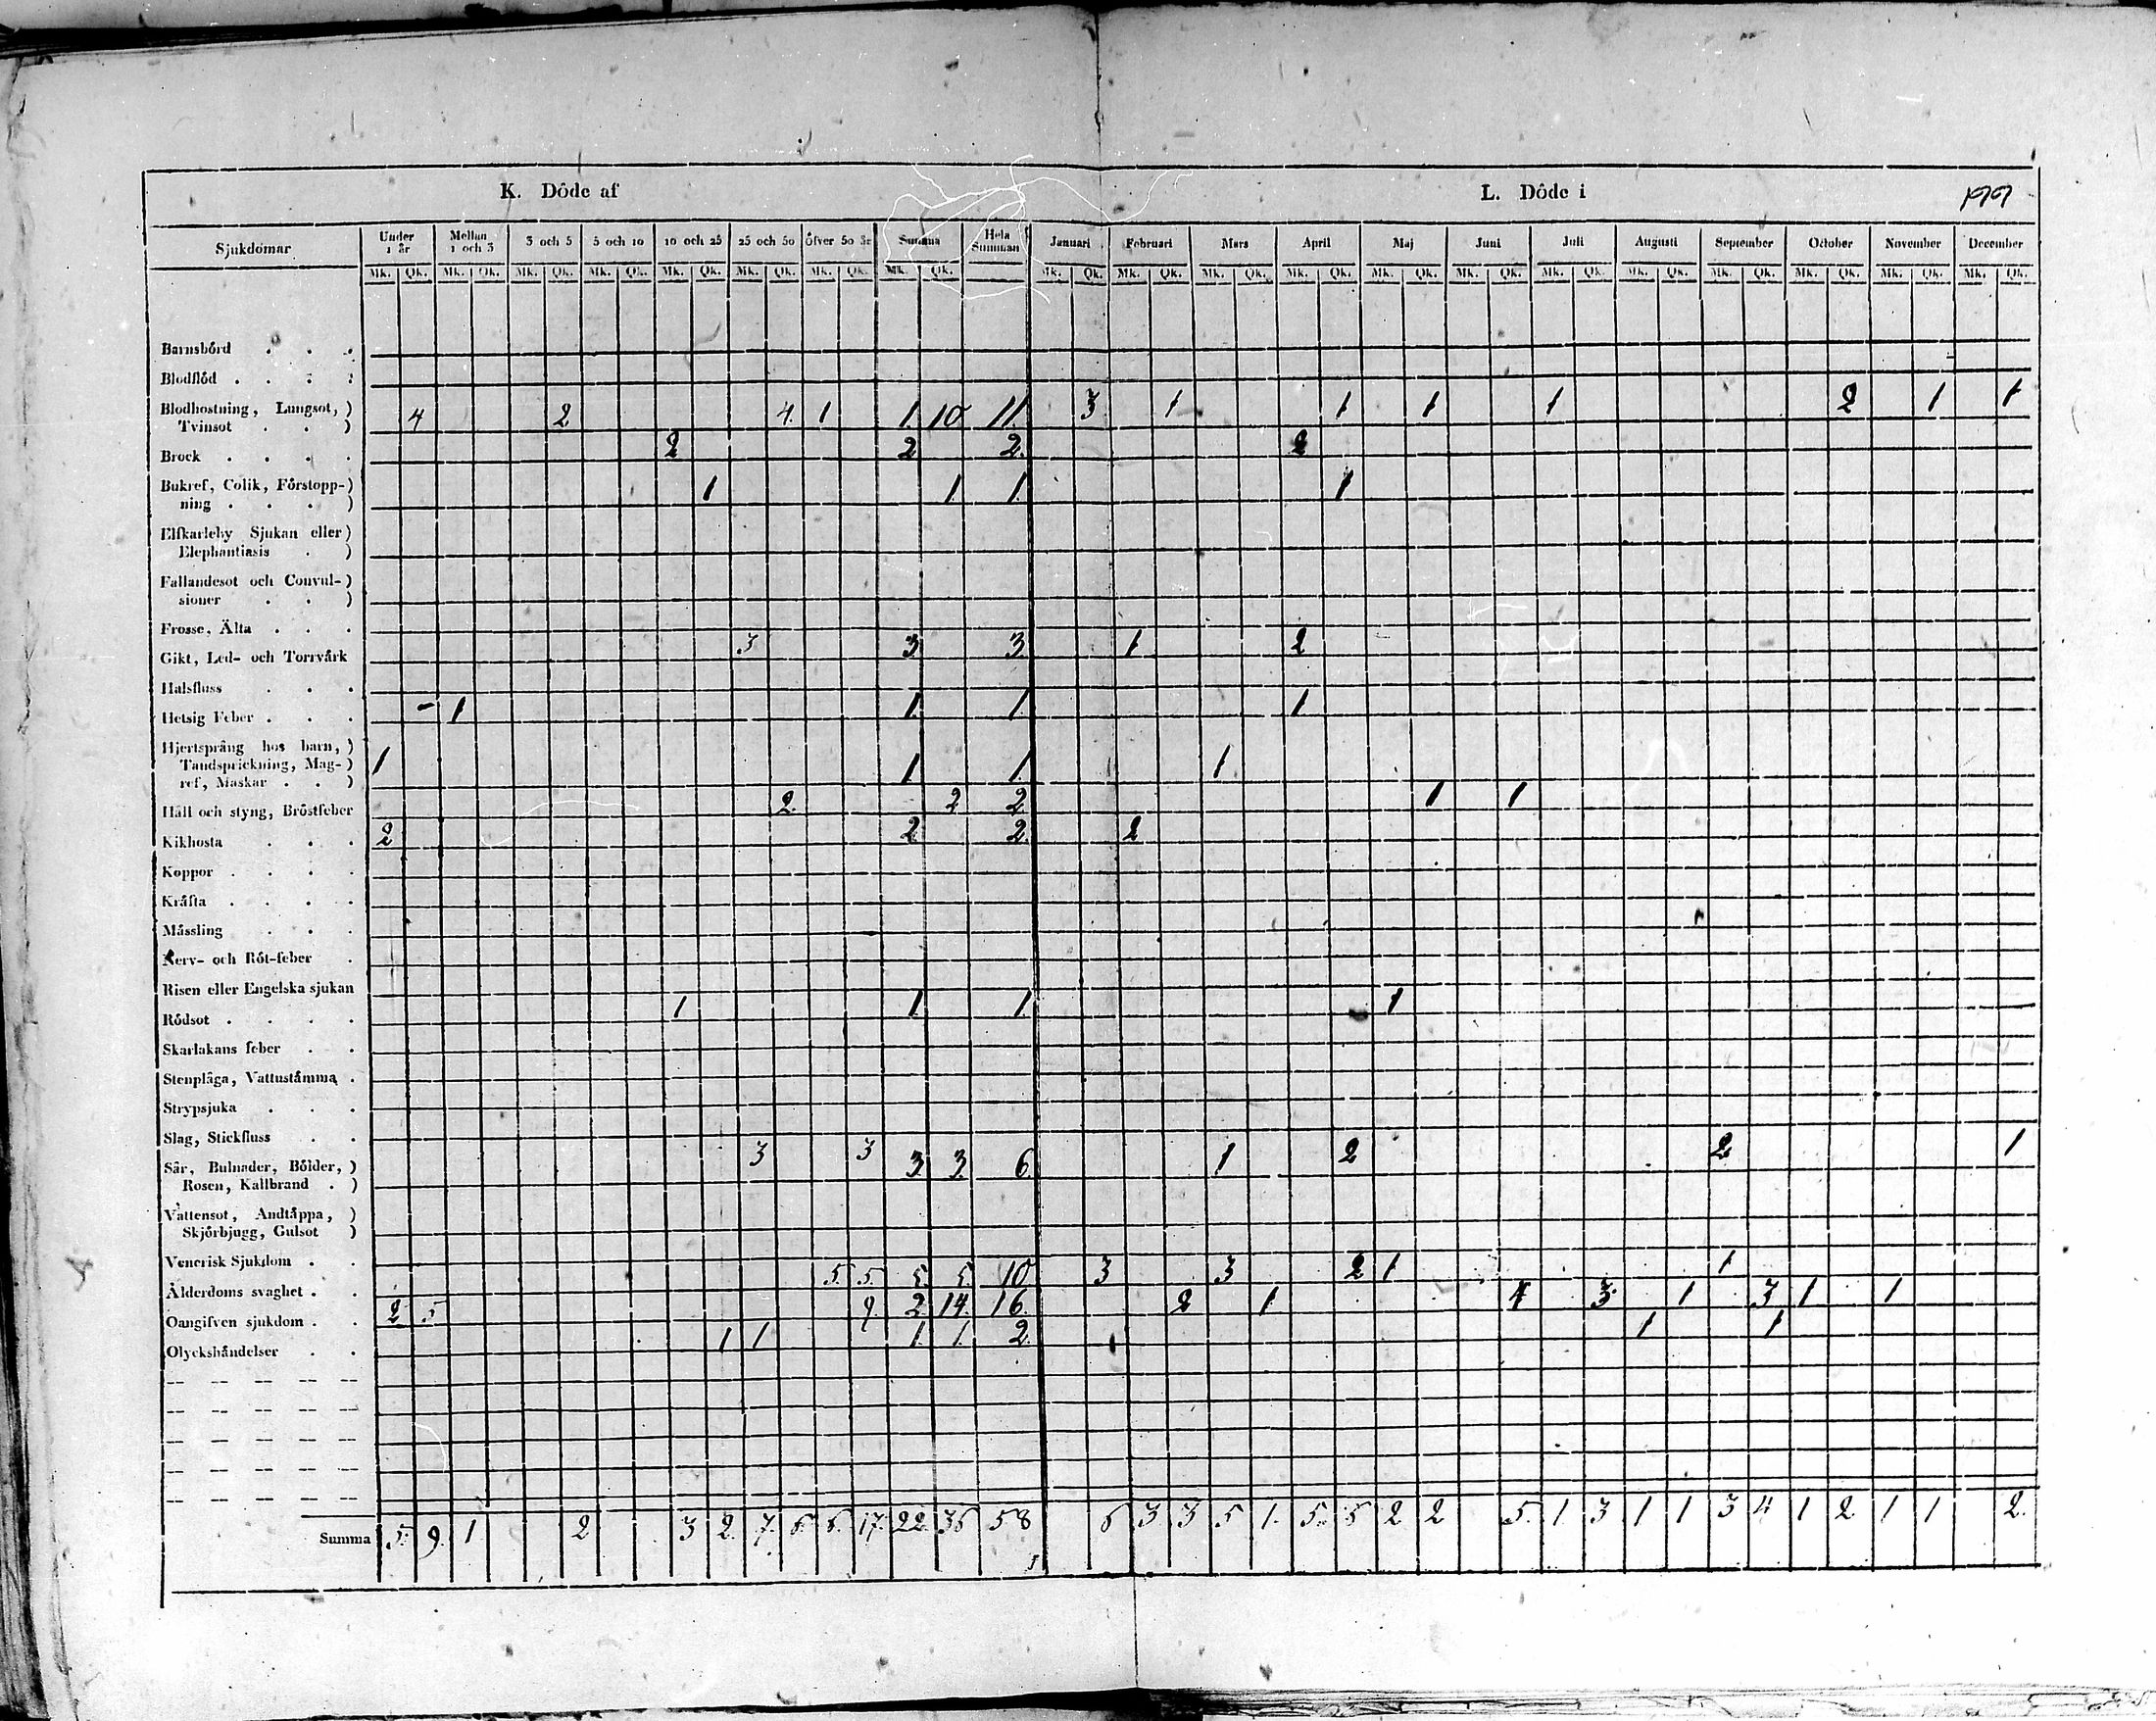 K. Döde af L. Döde i
Sjukdomar Under 1 år Mellan 1 och 3 3 och 5 5 och 10 10 och 25 25 och 50 öfver 50 år Summa Hela Summan Januari Februari Mars April Maj Juni Juli Augusti September October November December
Mk. Qk. Mk. Qk. Mk. Qk. Mk. Qk. Mk. Qk. Mk. Qk. Mk. Qk. Mk. Qk. Mk. Qk. Mk. Qk. Mk. Qk. Mk. Qk. Mk. Qk. Mk. Qk. Mk. Qk. Mk. Qk. Mk. Qk. Mk. Qk. Mk. Qk. Mk. Qk.
Barnsbörd . . .
Blodflöd . . . .
Blodhostning, Lungsot, )
Tvinsot . . ) 4 2 4. 1 1. 10 11. 3 1 1 1 1 2 1 1
Brock . . . . 2 2 2. 2
Bukref, Colik, Förstopp-)
ning . . . ) 1 1 1. 1
Elfkarleby Sjukan eller)
Elephantiasis . )
Fallandesot och Convul-)
sioner . . )
Frosse, Älta . . .
Gikt, Led- och Torrvärk 3 3 3 1 2
Halsfluss . . .
Hetsig Feber . . . - 1 1. 1. 1
Hjertsprång hos barn, )
Tandsprickning, Mag-)
ref, Maskar . . ) 1 1 1 1
Håll och styng, Bröstfeber 2. 2 2 1 1
Kikhosta . . . 2 2 2. 2
Koppor . . . .
Kräfta . . . .
Mässling . . .
Nerv- och Röt-feber .
Risen eller Engelska sjukan
Rödsot . . . . 1 1 1. 1
Skarlakans feber . .
Stenplåga, Vattustämma .
Strypsjuka . . .
Slag, Stickfluss . .
Sår, Bulnader, Bölder, )
Rosen, Kallbrand . ) 3 3 3 3. 6. 1 2 2 1
Vattensot, Andtäppa, )
Skjörbjugg, Gulsot )
Venerisk Sjukdom . .
Ålderdoms svaghet . . 5. 5. 5. 5. 10 3 3 2 1 1
Oangifven sjukdom . . 2 5 9. 2 14. 16. 2 1 4 3. 1 3 1 1
Olyckshändelser . . 1 1 1. 1. 2 1 1
Summa 5. 9. 1 2 3 2. 7. 6. 6. 17. 22. 36 58 6 3 3 5 1. 5. 6 2 2 5. 1. 3 1 1 3 4 1 2 1 1 2.